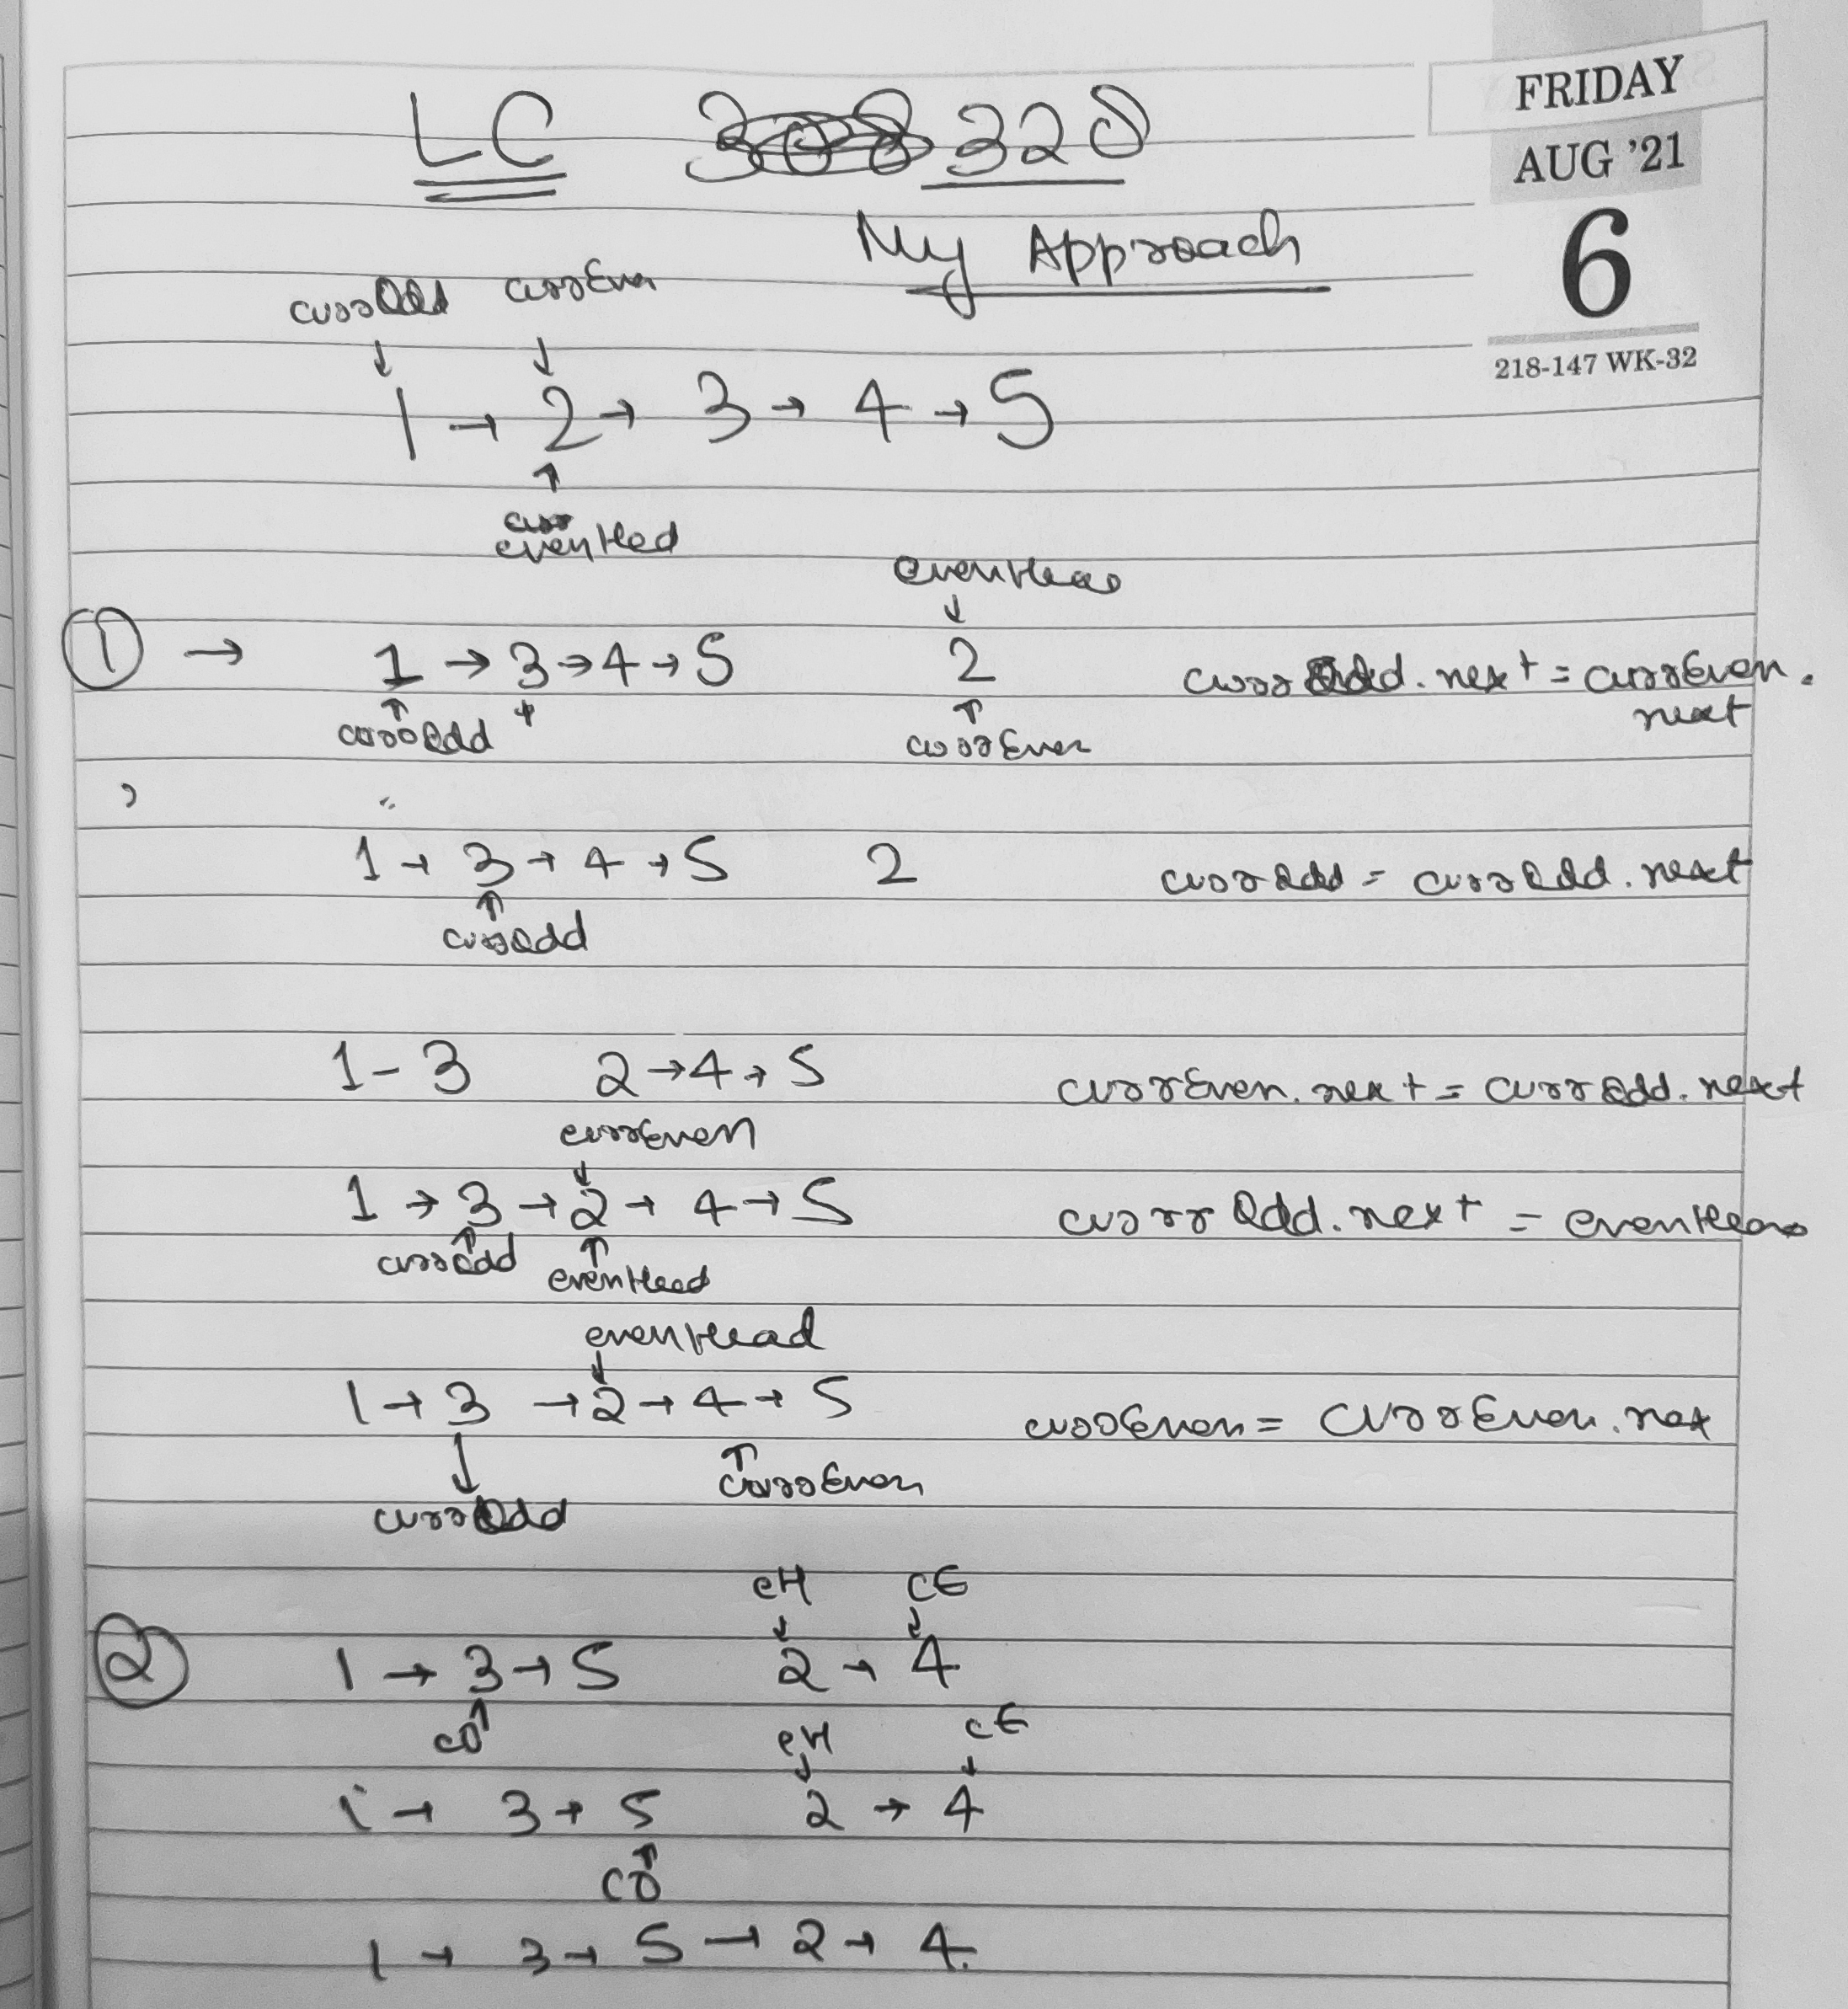 FRIDAY
AUG '21
6
218-147 WK-32
LC 328
My Approach
currOdd currEven
↓ ↓
1 → 2 → 3 → 4 → 5
↑
curr
evenHed
evenHead
↓
① → 1 → 3 → 4 → 5 2 currOdd.next = currEven.
next
↑ ↑
currOdd currEven
1 → 3 → 4 → 5 2 currOdd = currOdd.next
↑
currOdd
1 - 3 2 → 4 → 5 currEven.next = currOdd.next
currEven
↓
1 → 3 → 2 → 4 → 5 currOdd.next = evenHead
↑ ↑
currOdd evenHead
evenHead
↓
1 → 3 → 2 → 4 → 5 currEven = currEven.nex
↓ ↑
currEven
currOdd
eH CE
↓ ↓
② 1 → 3 → 5 2 → 4
↑
CO
eH CE
↓ ↓
1 → 3 → 5 2 → 4
↑
CO
1 → 3 → 5 → 2 → 4.